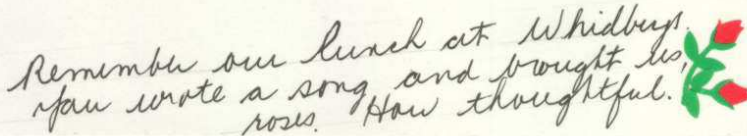 Remember our lunch at Whidbeys.
You wrote a song and brought us,
roses. How thoughtful.